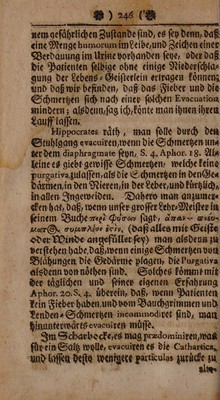 ) 246 (
nem gefährlichen Zustande sind, es sey denn, daß
eine Menge humorum im Leibe, und Zeichen einer
Verdauung im Urine vorhanden seye, oder daß
die Patienten selbige ohne einige Niederschla-
gung der Lebens-Geisterlein ertragen können,
und daß wir befinden, daß das Fieber und die
Schmertzen sich nach einer solchen Evacuation
mindern; alsdenn, sag ich, könte man ihnen ihren
Lauff lassen.
Hippocrates räth, man solle durch den
Stuhlgang evacuiren, wenn die Schmertzen un-
ter dem diaphragmate seyn, S. 4. Aphor. 18. Al-
leine es giebt gewisse Schmertzen welche keine
purgativa zulassen, als die Schmertzen in den Ge-
därmen, in den Nieren, in der Leber, und kürtzlich,
in allen Ingeweiden. Dahero man anzumer-
cken hat, daß, wenn unser grosser Lehr-Meister in
seinem Buche περὶ Φύσων sagt,
(daß alles mit Geiste
oder Winde angefüllet sey) man alsdenn zu
verstehen habe, daß, wenn einige Schmertzen von
Blähungen die Gedärme plagen, die Purgativa
alsdenn von nöthen sind. Solches kömmt mit
der täglichen und seiner eigenen Erfahrung
Aphor. 20. S. 4. überein, daß, wenn Patiente
kein Fieber haben, und vom Bauchgrimmen und
Lenden-Schmertzen incommodiret sind, man
hinunterwärts evacuiren müsse.
Im Scharbocke, es mag prædominiren, was
für ein Saltz wolle, evacuiren es die Cathartica,
und lassen desto wenigere particulas zurücke zu